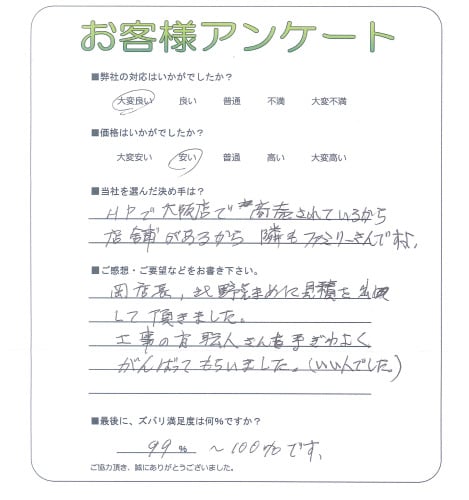 お客様アンケート
■弊社の対応はいかがでしたか？
大変良い 良い 普通 不満 大変不満
■価格はいかがでしたか？
大変安い 安い 普通 高い 大変高い
■当社を選んだ決め手は？
HPで大阪店で商売されているから
店舗があるから 隣もファミリーさんですね、
■ご感想・ご要望などをお書き下さい。
岡店長、北野さまめに見積を出
して頂きました。
工事の方 職人さんも手ぎわよく
がんばってもらいました。(いい人でした)
■最後に、ズバリ満足度は何%ですか？
99% ～100%です、
ご協力頂き、誠にありがとうございました。